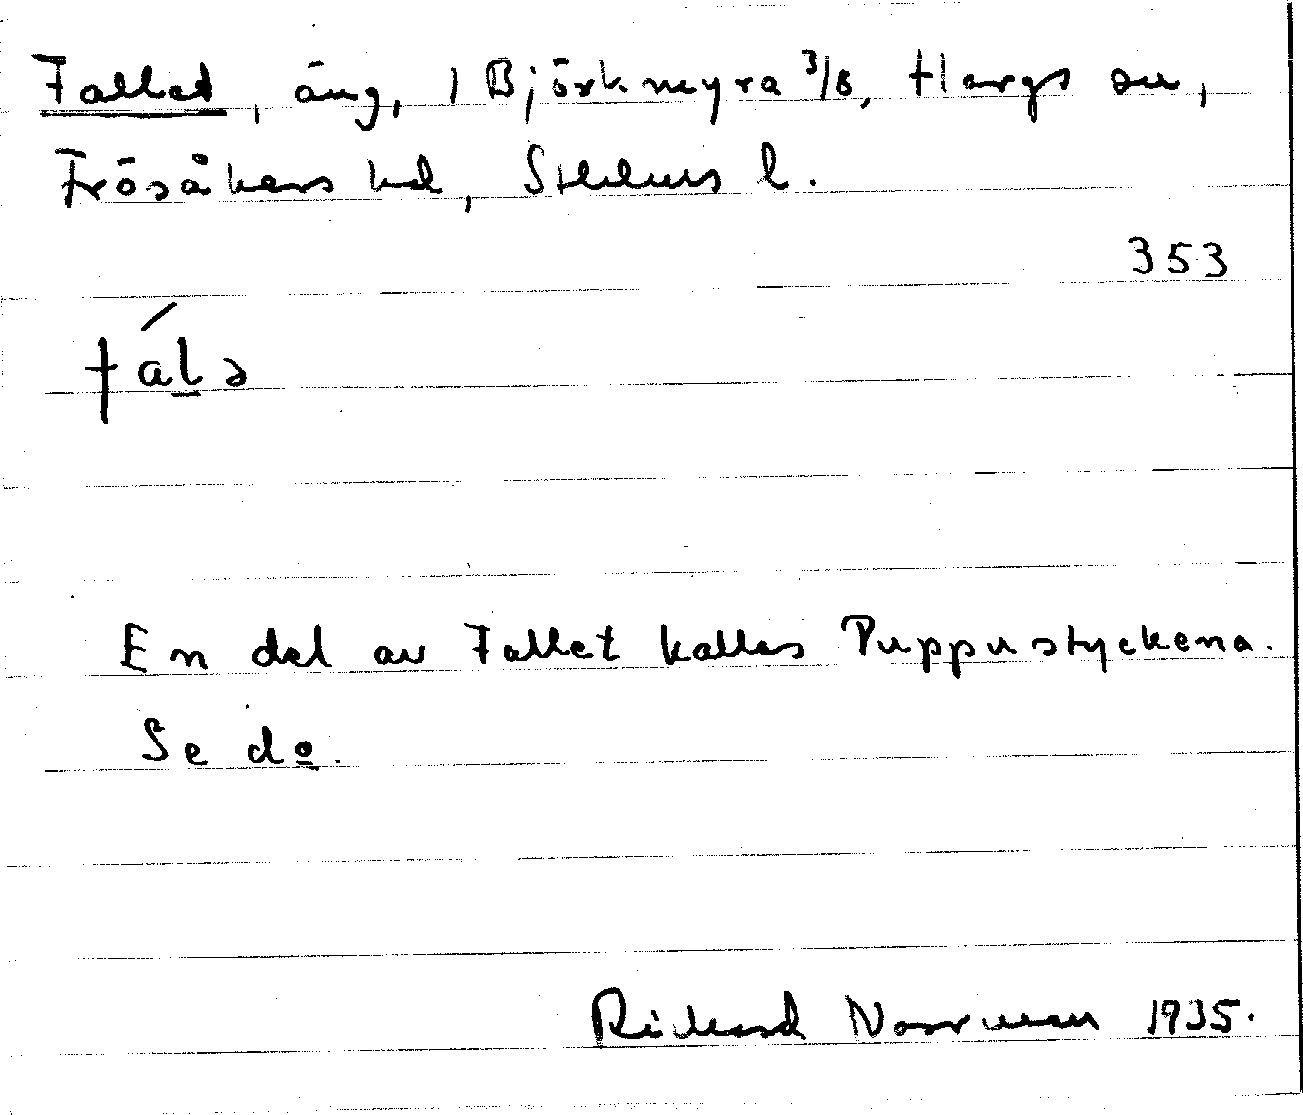 Fallet, äng, 1 Björkmyra 3/8, Hargs sn,
Frösåkers hd, Sthlms l.
353
fálə
En del av Fallet kallas Puppustyckena.
Se do.
Rickard Norrman 1935.